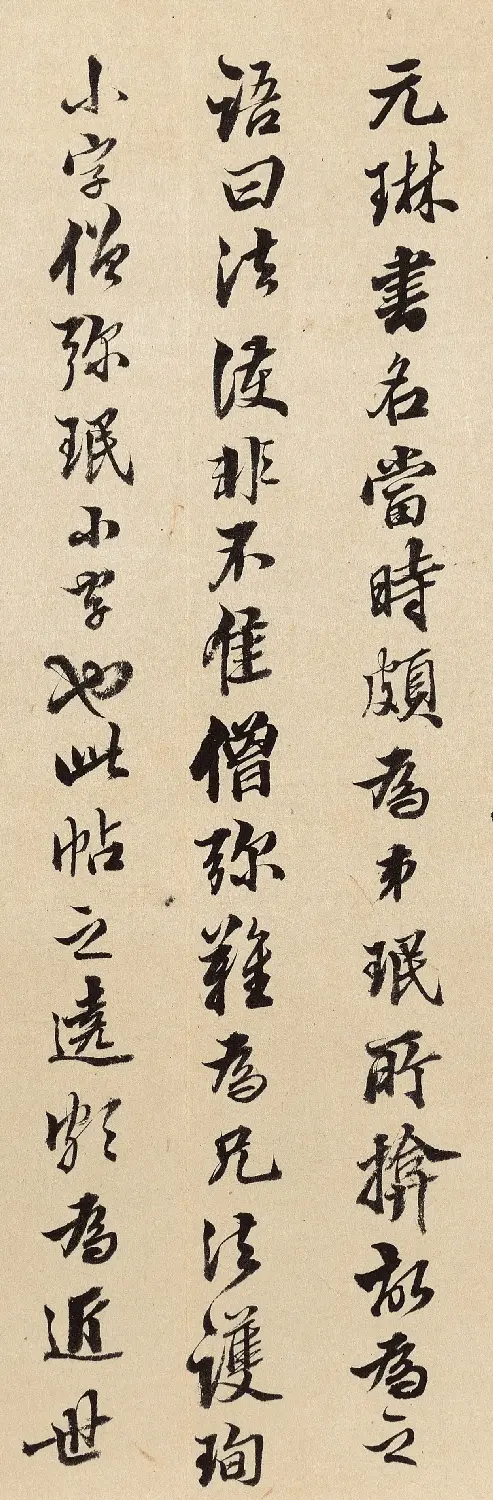 元琳書名當時頗為弟珉所揜故為之
語曰法護非不佳僧弥難為兄法護珣
小字僧弥珉小字也此帖之遶為近世